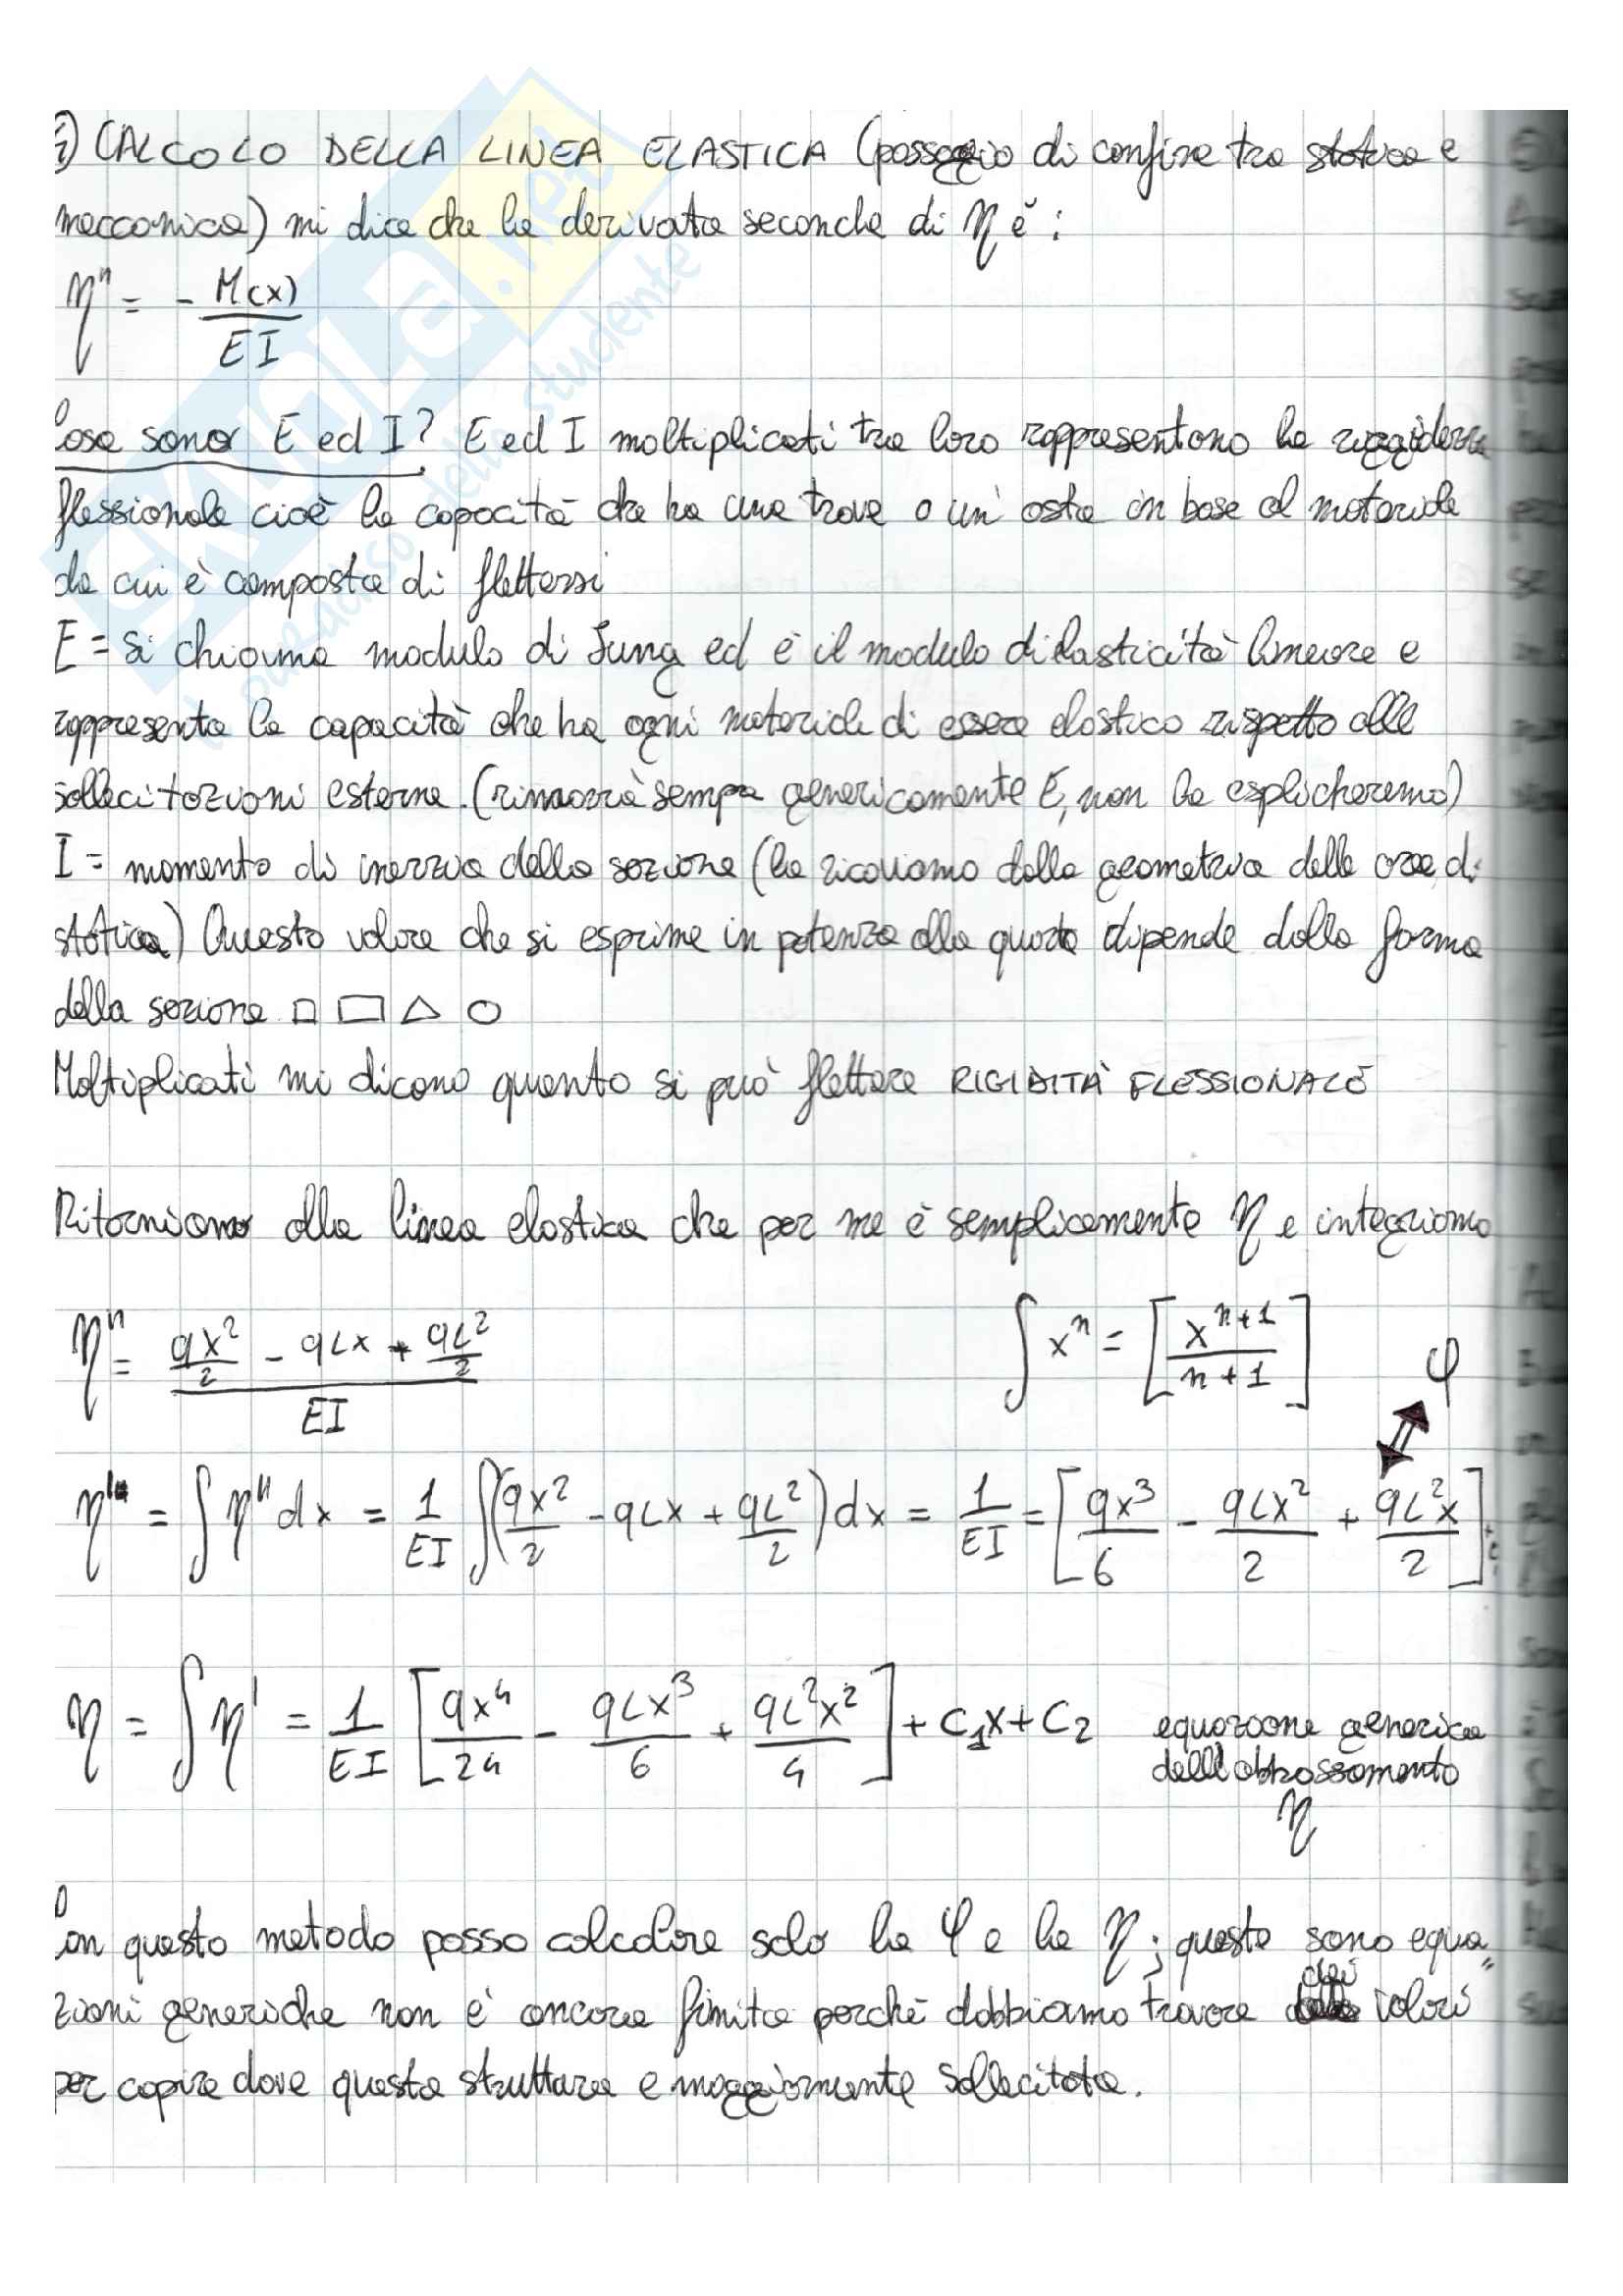 CALCOLO DELLA LINEA ELASTICA (passaggio di confine tra statica e
meccanica) mi dice che la derivata seconda di η è:
η'' = - M(x) / EI
Cosa sono E ed I? E ed I moltiplicati tra loro rappresentano la
flessionale cioè la capacità che ha una trave o un'asta in base al materiale
da cui è composta di flettersi
E = si chiama modulo di Jung ed è il modulo di lasticità lineare e
rappresenta la capacità che ha ogni materiale di essere elastico rispetto alle
sollecitazioni esterne. (rimarrà sempre genericamente E, non la esplicheremo)
I = momento di inerzia della sezione (la ricaviamo dalla geometria delle aree di
statica) Questo valore che si esprime in potenza alla quarta dipende dalla forma
della sezione □ ▭ △ ○
Moltiplicati mi dicono quanto si può flettere RIGIDITÀ FLESSIONALE
Ritorniamo alla linea elastica che per me è semplicemente η e integriamo
η'' = (qx²/2 - qLx + qL²/2) / EI ∫ xⁿ = [xⁿ⁺¹ / n+1] φ
η' = ∫ η'' dx = 1/EI ∫(qx²/2 - qLx + qL²/2) dx = 1/EI = [qx³/6 - qLx²/2 + qL²x/2]
η = ∫ η' = 1/EI [qx⁴/24 - qLx³/6 + qL²x²/4] + C₁x + C₂ equazione generica
dell'abbassamento
η
Con questo metodo posso calcolare solo la φ e la η; queste sono equa"
zioni generiche non è ancora finita perché dobbiamo trovare dei valori
per capire dove questa struttura e maggiormente sollecitata.
SKUOLA.net
il paradiso dello studente